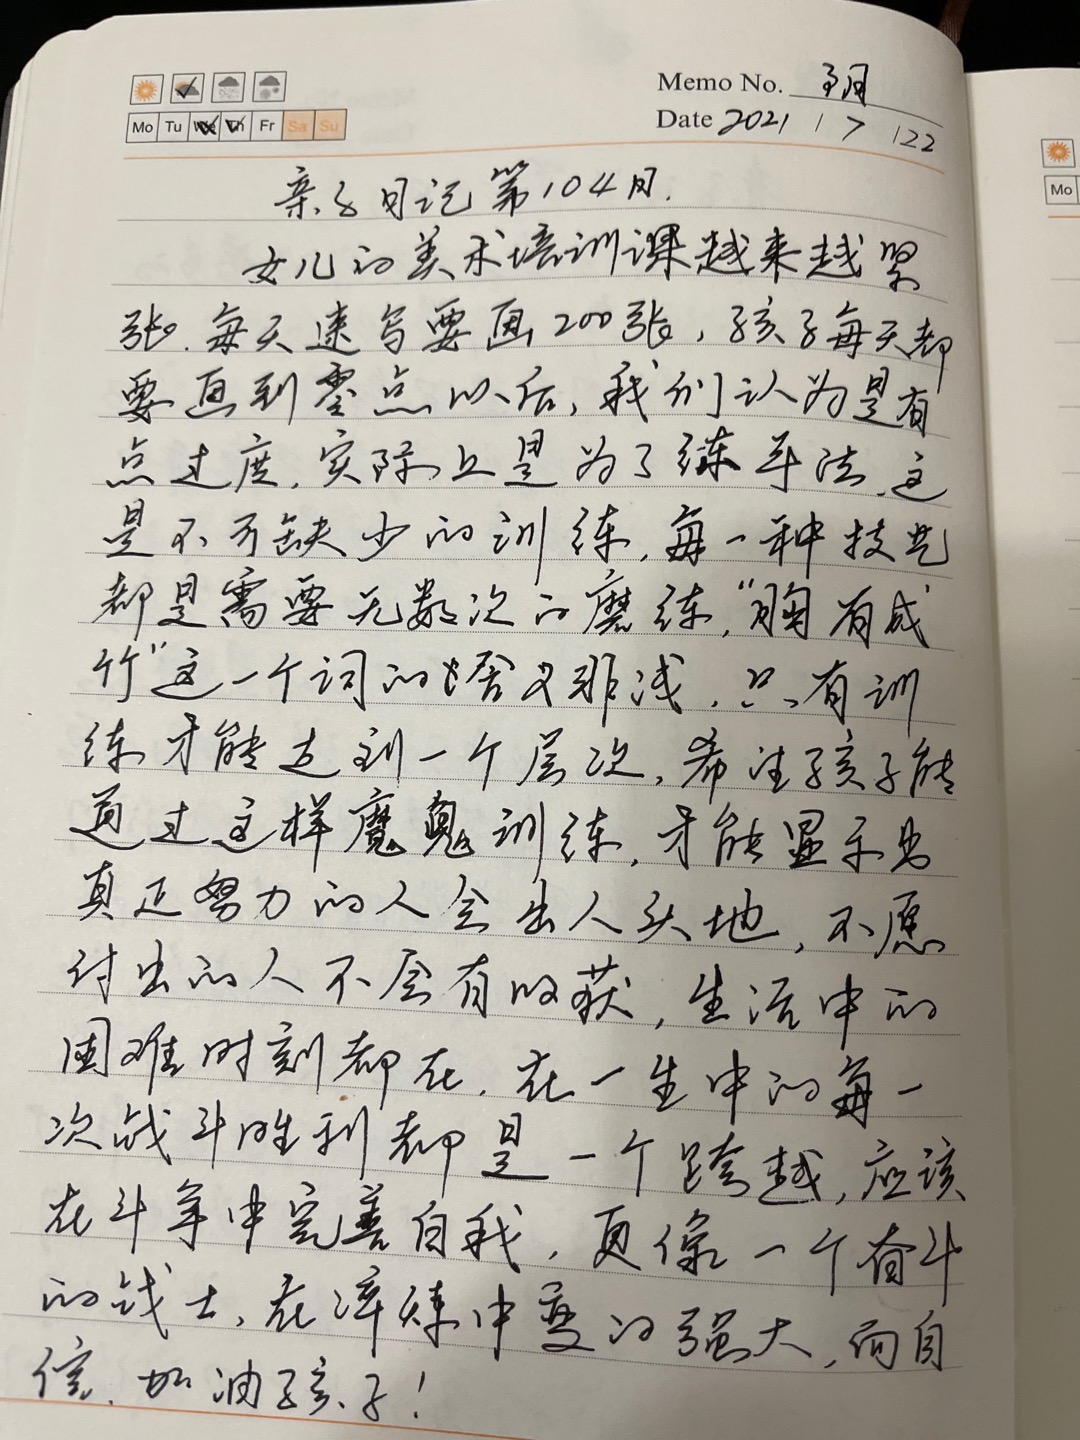 Memo No.
Mo Tu We Th Fr Sa Su
Date 2021 / 7 / 22
亲子日记第104月.
女儿的美术培训课越来越紧
张.每天速写要画200张,孩子每天都
要画到零点以后,我们认为是有
点过度.实际上是为了练手法.这
是不可缺少的训练,每一种技艺
都是需要无数次的磨练,"胸有成
竹"这一个词的含义非浅.只有训
练才能达到一个层次,希望孩子能
通过这样魔鬼训练,才能显示出
真正努力的人会出人头地,不愿
付出的人不会有收获,生活中的
困难时刻都在.在一生中的每一
次战斗胜利都是一个跨越,应该
在斗争中完善自我,更像一个奋斗
的战士,在淬炼中变的强大,而自
信.加油孩子!
Mo